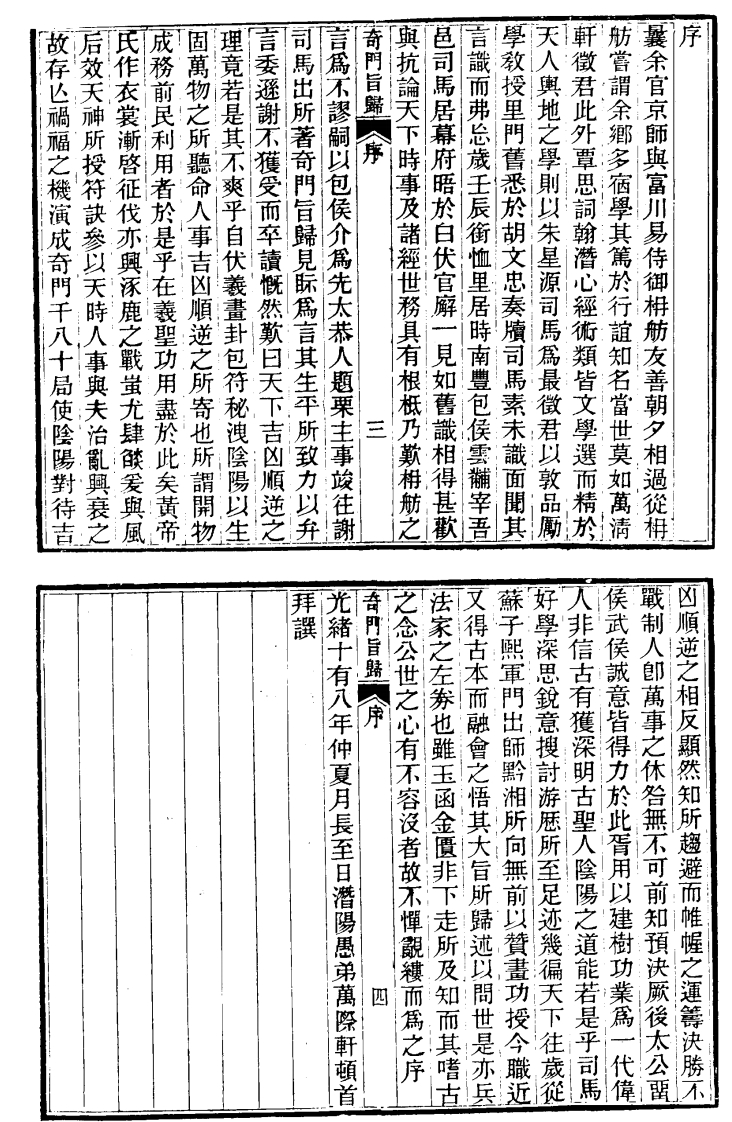 序
曩余官京師與富川易侍御枏舫友善朝夕相過從枏
舫嘗謂余鄉多宿學其篤於行誼知名當世莫如萬清
軒徵君此外覃思詞翰潛心經術類皆文學選而精於
天人輿地之學則以朱星源司馬為最徵君以敦品勵
學教授里門舊悉於胡文忠奏牘司馬素未識面聞其
言識而弗忘歲壬辰銜恤里居時南豐包侯雲黼宰吾
邑司馬居幕府晤於白伏官廨一見如舊識相得甚歡
與抗論天下時事及諸經世務具有根柢乃歎枏舫之
奇門旨歸
序
三
言為不謬嗣以包侯介為先太恭人題栗主事竣往謝
司馬出所著奇門旨歸見眎為言其生平所致力以弁
言委遜謝不獲受而卒讀慨然歎曰天下吉凶順逆之
理竟若是其不爽乎自伏羲畫卦包符秘洩陰陽以生
固萬物之所聽命人事吉凶順逆之所寄也所謂開物
成務前民利用者於是乎在羲聖功用盡於此矣黃帝
氏作衣裳漸啓征伐亦興涿鹿之戰蚩尤肆燄爰與風
后效天神所授符訣參以天時人事與夫治亂興衰之
故存亾禍福之機演成奇門千八十局使陰陽對待吉
凶順逆之相反顯然知所趨避而帷幄之運籌決勝不
戰制人卽萬事之休咎無不可前知預決厥後太公畱
侯武侯誠意皆得力於此胥用以建樹功業為一代偉
人非信古有獲深明古聖人陰陽之道能若是乎司馬
好學深思銳意搜討游歷所至足迹幾徧天下往歲從
蘇子熙軍門出師黔湘所向無前以贊畫功授今職近
又得古本而融會之悟其大旨所歸述以問世是亦兵
法家之左券也雖玉函金匱非下走所及知而其嗜古
之念公世之心有不容沒者故不憚覼縷而為之序
奇門旨歸
序
四
光緒十有八年仲夏月長至日潛陽愚弟萬際軒頓首
拜譔